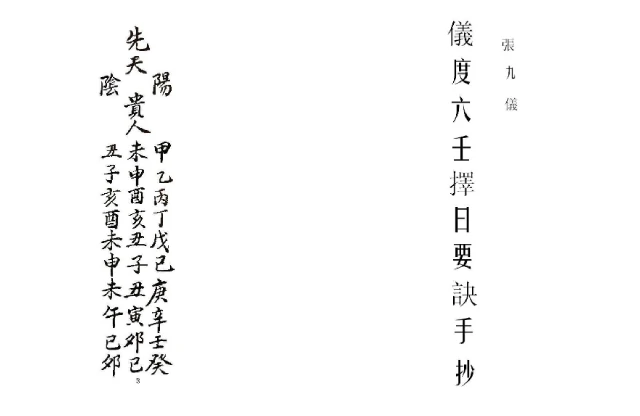 張九儀
儀度六壬擇日要訣手抄
陽 甲乙丙丁戊己庚辛壬癸
先天貴人 未申酉亥丑子丑寅卯巳
陰 丑子亥酉未申未午巳卯
3